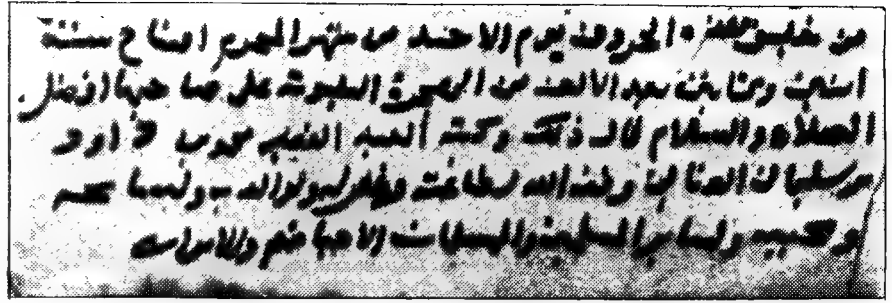 من خليق الحروف يوم الاحد من شهر المحرم افتتاح سنة
اثنين وثمانين بعد الالف من الهجرة النبوية على صاحبها افضل
الصلاة والسلام قال ذلك وكتبه العبد الفقير
بن سليمان العنانى وفقه الله لطاعته وغفر له ولوالديه ولمشايخه
ومحبيه ولسائر المسلمين والمسلمات الاحياء منهم والاموات